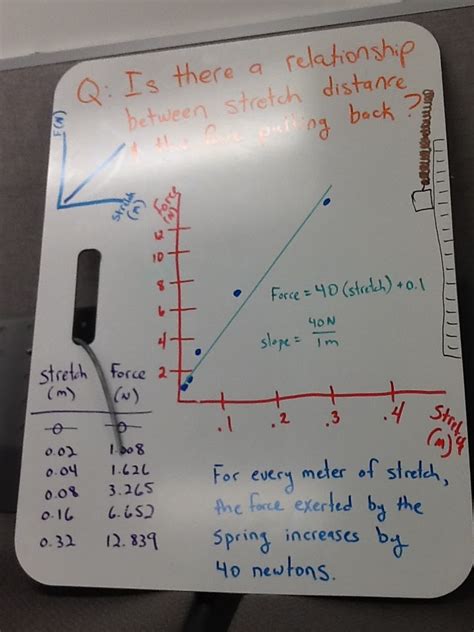 Q: Is there a relationship
between stretch distance
& the force pulling back?
F(N)
stretch
(m)
Force
(N)
12
10
8
6
4
2
.1
.2
.3
.4
(m)
Force = 40 (stretch) + 0.1
slope = 40N
1m
stretch Force
(m) (N)
0 0
0.02 1.008
0.04 1.626
0.08 3.265
0.16 6.652
0.32 12.839
For every meter of stretch,
the force exerted by the
spring increases by
40 newtons.